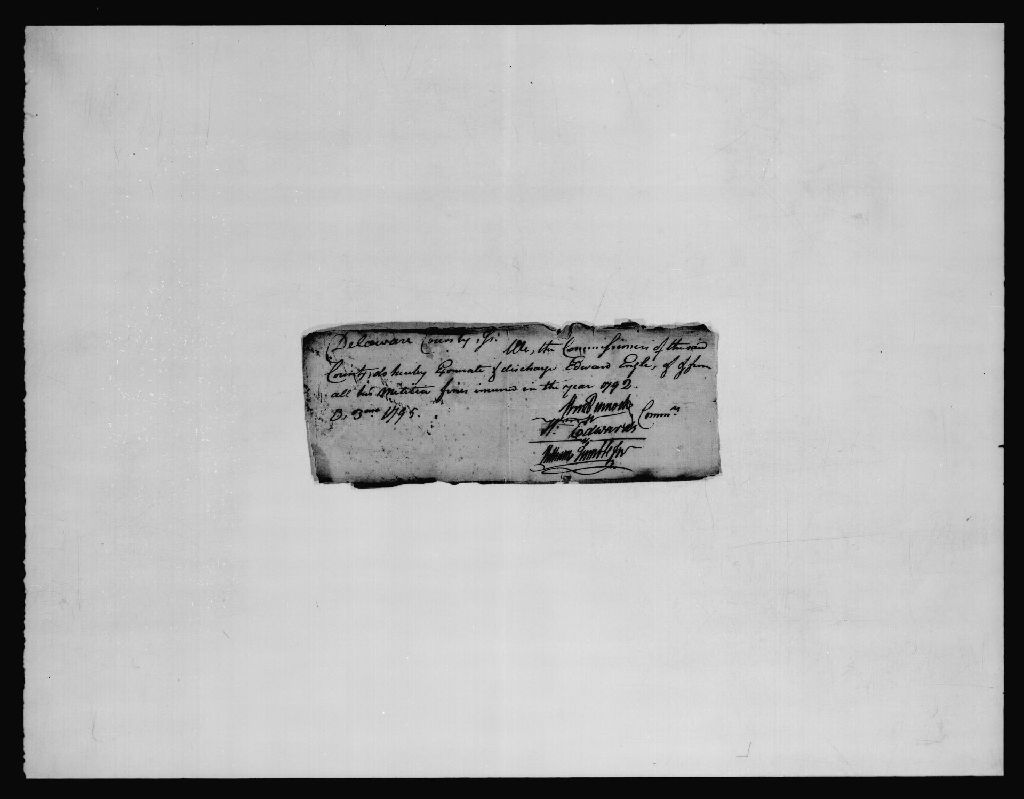 Delaware County Ss.
We, the Commissioners of the said
County, do hereby Exonerate & discharge Edward Engle, of & from
all his Militia fines incurred in the year 1792.
1795.
Edwards Commrs
William